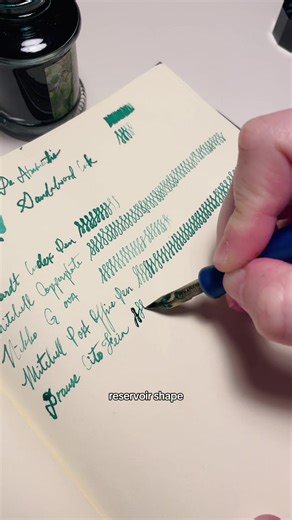 Sandalwood Ink
Codex Pen
Mitchell Copperplate
Nikko G
Mitchell Post Office Pen
Brause Cito Fein
reservoir shape